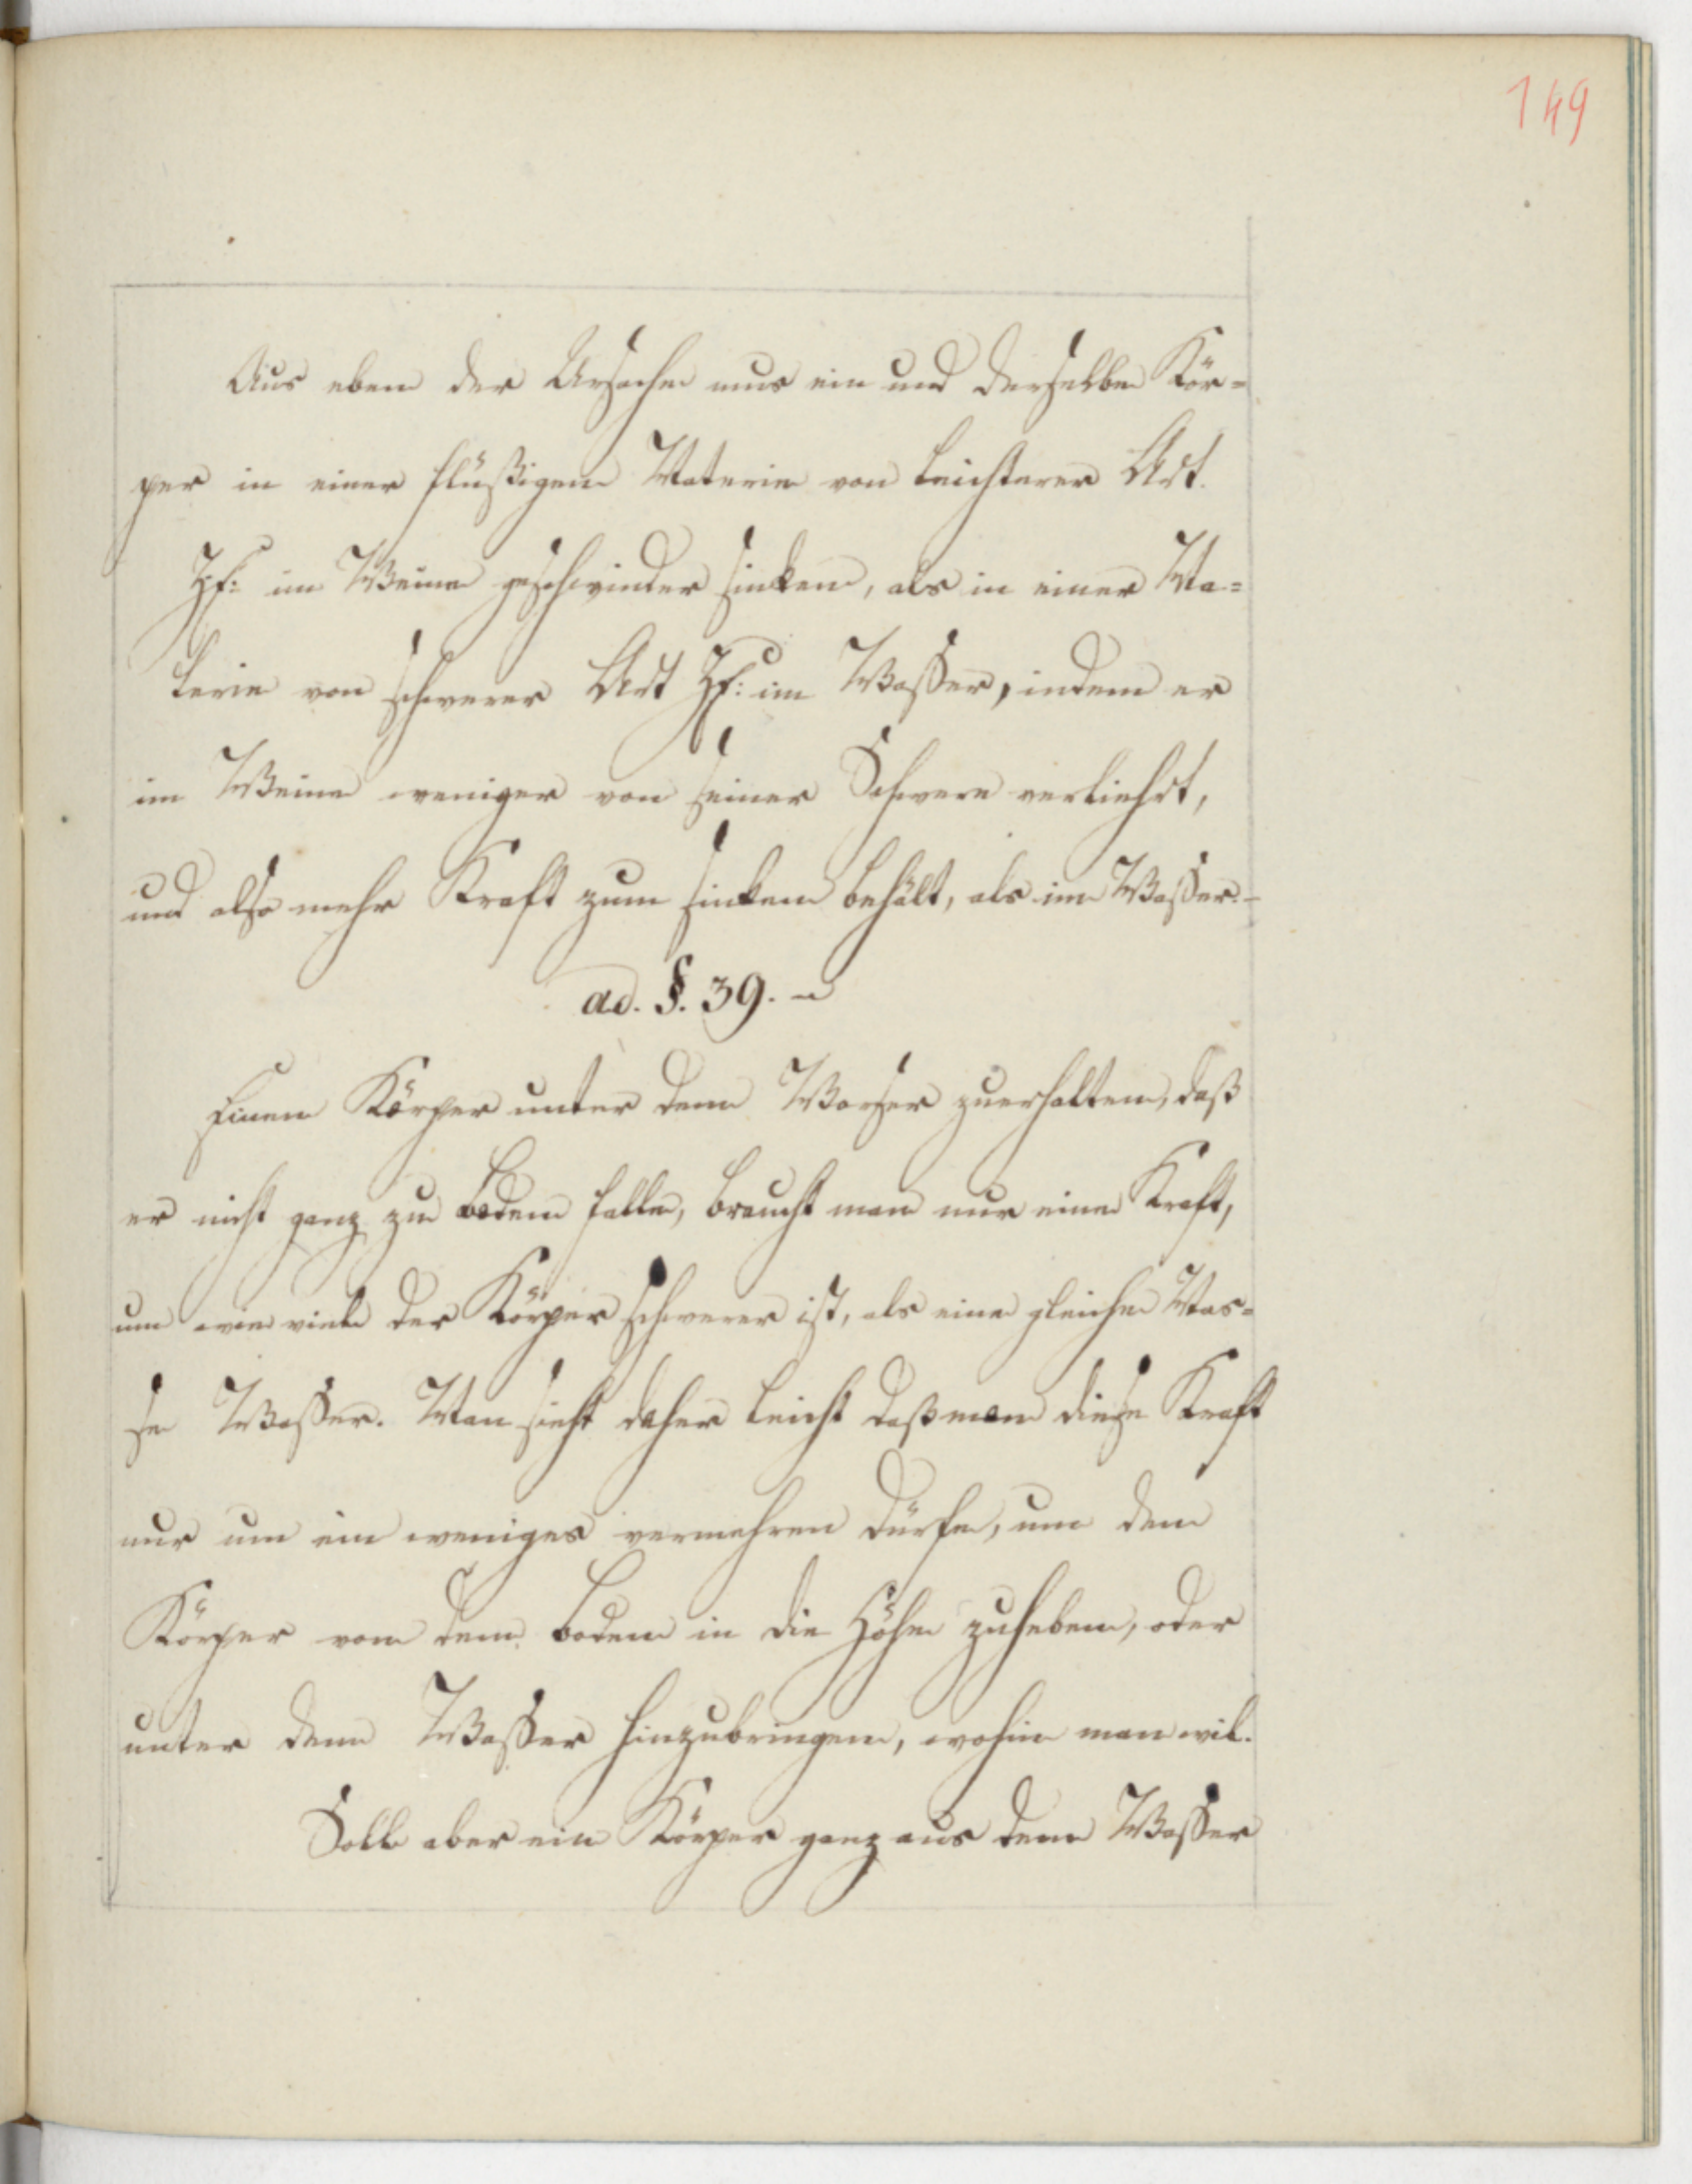 149
Aus eben der Ursache mus ein und derselbe Kör=
per in einer flüßigen Materie von leichterer Art.
Zf: im Weine geschwinder sinken, als in einer Ma=
terie von schwerer Art Zf: im Waßer, indem er
im Weine weniger von seiner Schwere verliehrt,
und also mehr Kraft zum sinken behält, als im Waßer. –
ad. §. 39. –
Einen Körper unter dem Wasser zuerhalten, daß
er nicht ganz zu boden falle, braucht man nur eine Kraft,
um wie viele der Körper schwerer ist, als eine gleiche Mas=
se Waßer. Man sieht daher leicht daß man diese Kraft
nur um ein weniges vermehren dürfe, um den
Körper von dem boden in die Höhe zuheben, oder
unter dem Waßer hinzubringen, wohin man wil.
Solle aber ein Körper ganz aus dem Waßer